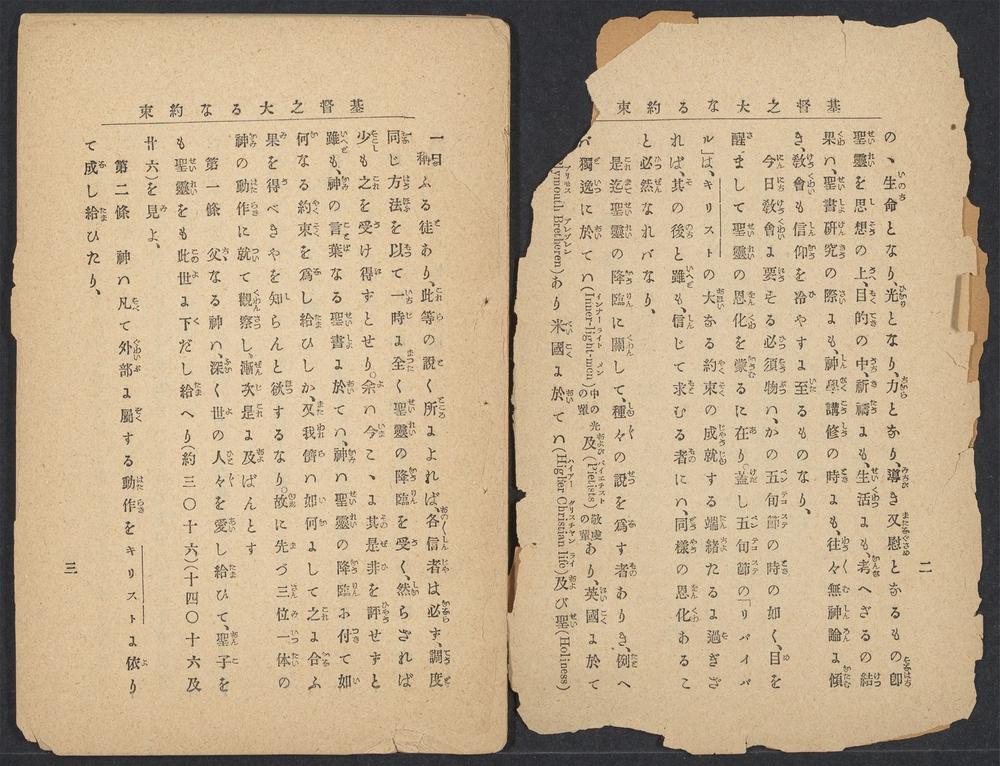 基督之大なる約束
二
の、生命となり光となり、力となり、導き又慰となるもの卽
聖靈を思想の上、目的の中、祈禱にも、生活よも、考へざるの結
果ハ、聖書研究の際よも、神學講修の時よも往々無神論よ傾
き、敎會も信仰を冷やすよ至るものなり、
今日敎會よ要そる必須物ハ、かの五旬節の時の如く、目を
醒まして聖靈の恩化を蒙るに在り、蓋し五旬節の「リバイバ
ル」は、キリストの大なる約束の成就する端緒たるよ過ぎざ
れば、其の後と雖も、信じて求むる者にハ、同樣の恩化あるこ
と必然なれバなり、
是迄聖靈の降臨に關して、種々の説を爲す者ありき、例へ
バ獨逸に於てハ(Inner-light-men)中の光の輩及(Pietists)敬虔の輩あり、英國よ於て
lymouth Bretheren)あり米國よ於てハ(Higher Christian life)及び聖(Holiness)
基督之大なる約束
稱ふる徒あり、此等の説く所よよれば、各信者は必ず、調度
同じ方法を以て一時よ全く聖靈の降臨を受く、然らざれば
少も之を受け得ずとせり。余ハ今こゝよ其是非を評せずと
雖も、神の言葉なる聖書よ於てハ、神ハ聖靈の降臨お付て如
何なる約束を爲し給ひしか、又我儕ハ如何よして之よ合ふ
果を得べきやを知らんと欲するなり。故に先づ三位一体の
神の動作に就て觀察し、漸次是よ及ばんとす
第一條　父なる神ハ、深く世の人々を愛し給ひて、聖子を
も聖靈をも此世よ下だし給へり(約三〇十六)(十四〇十六及
廿六)を見よ、
第二條　神ハ凡て外部よ屬する動作をキリストよ依り
て成し給ひたり、
三